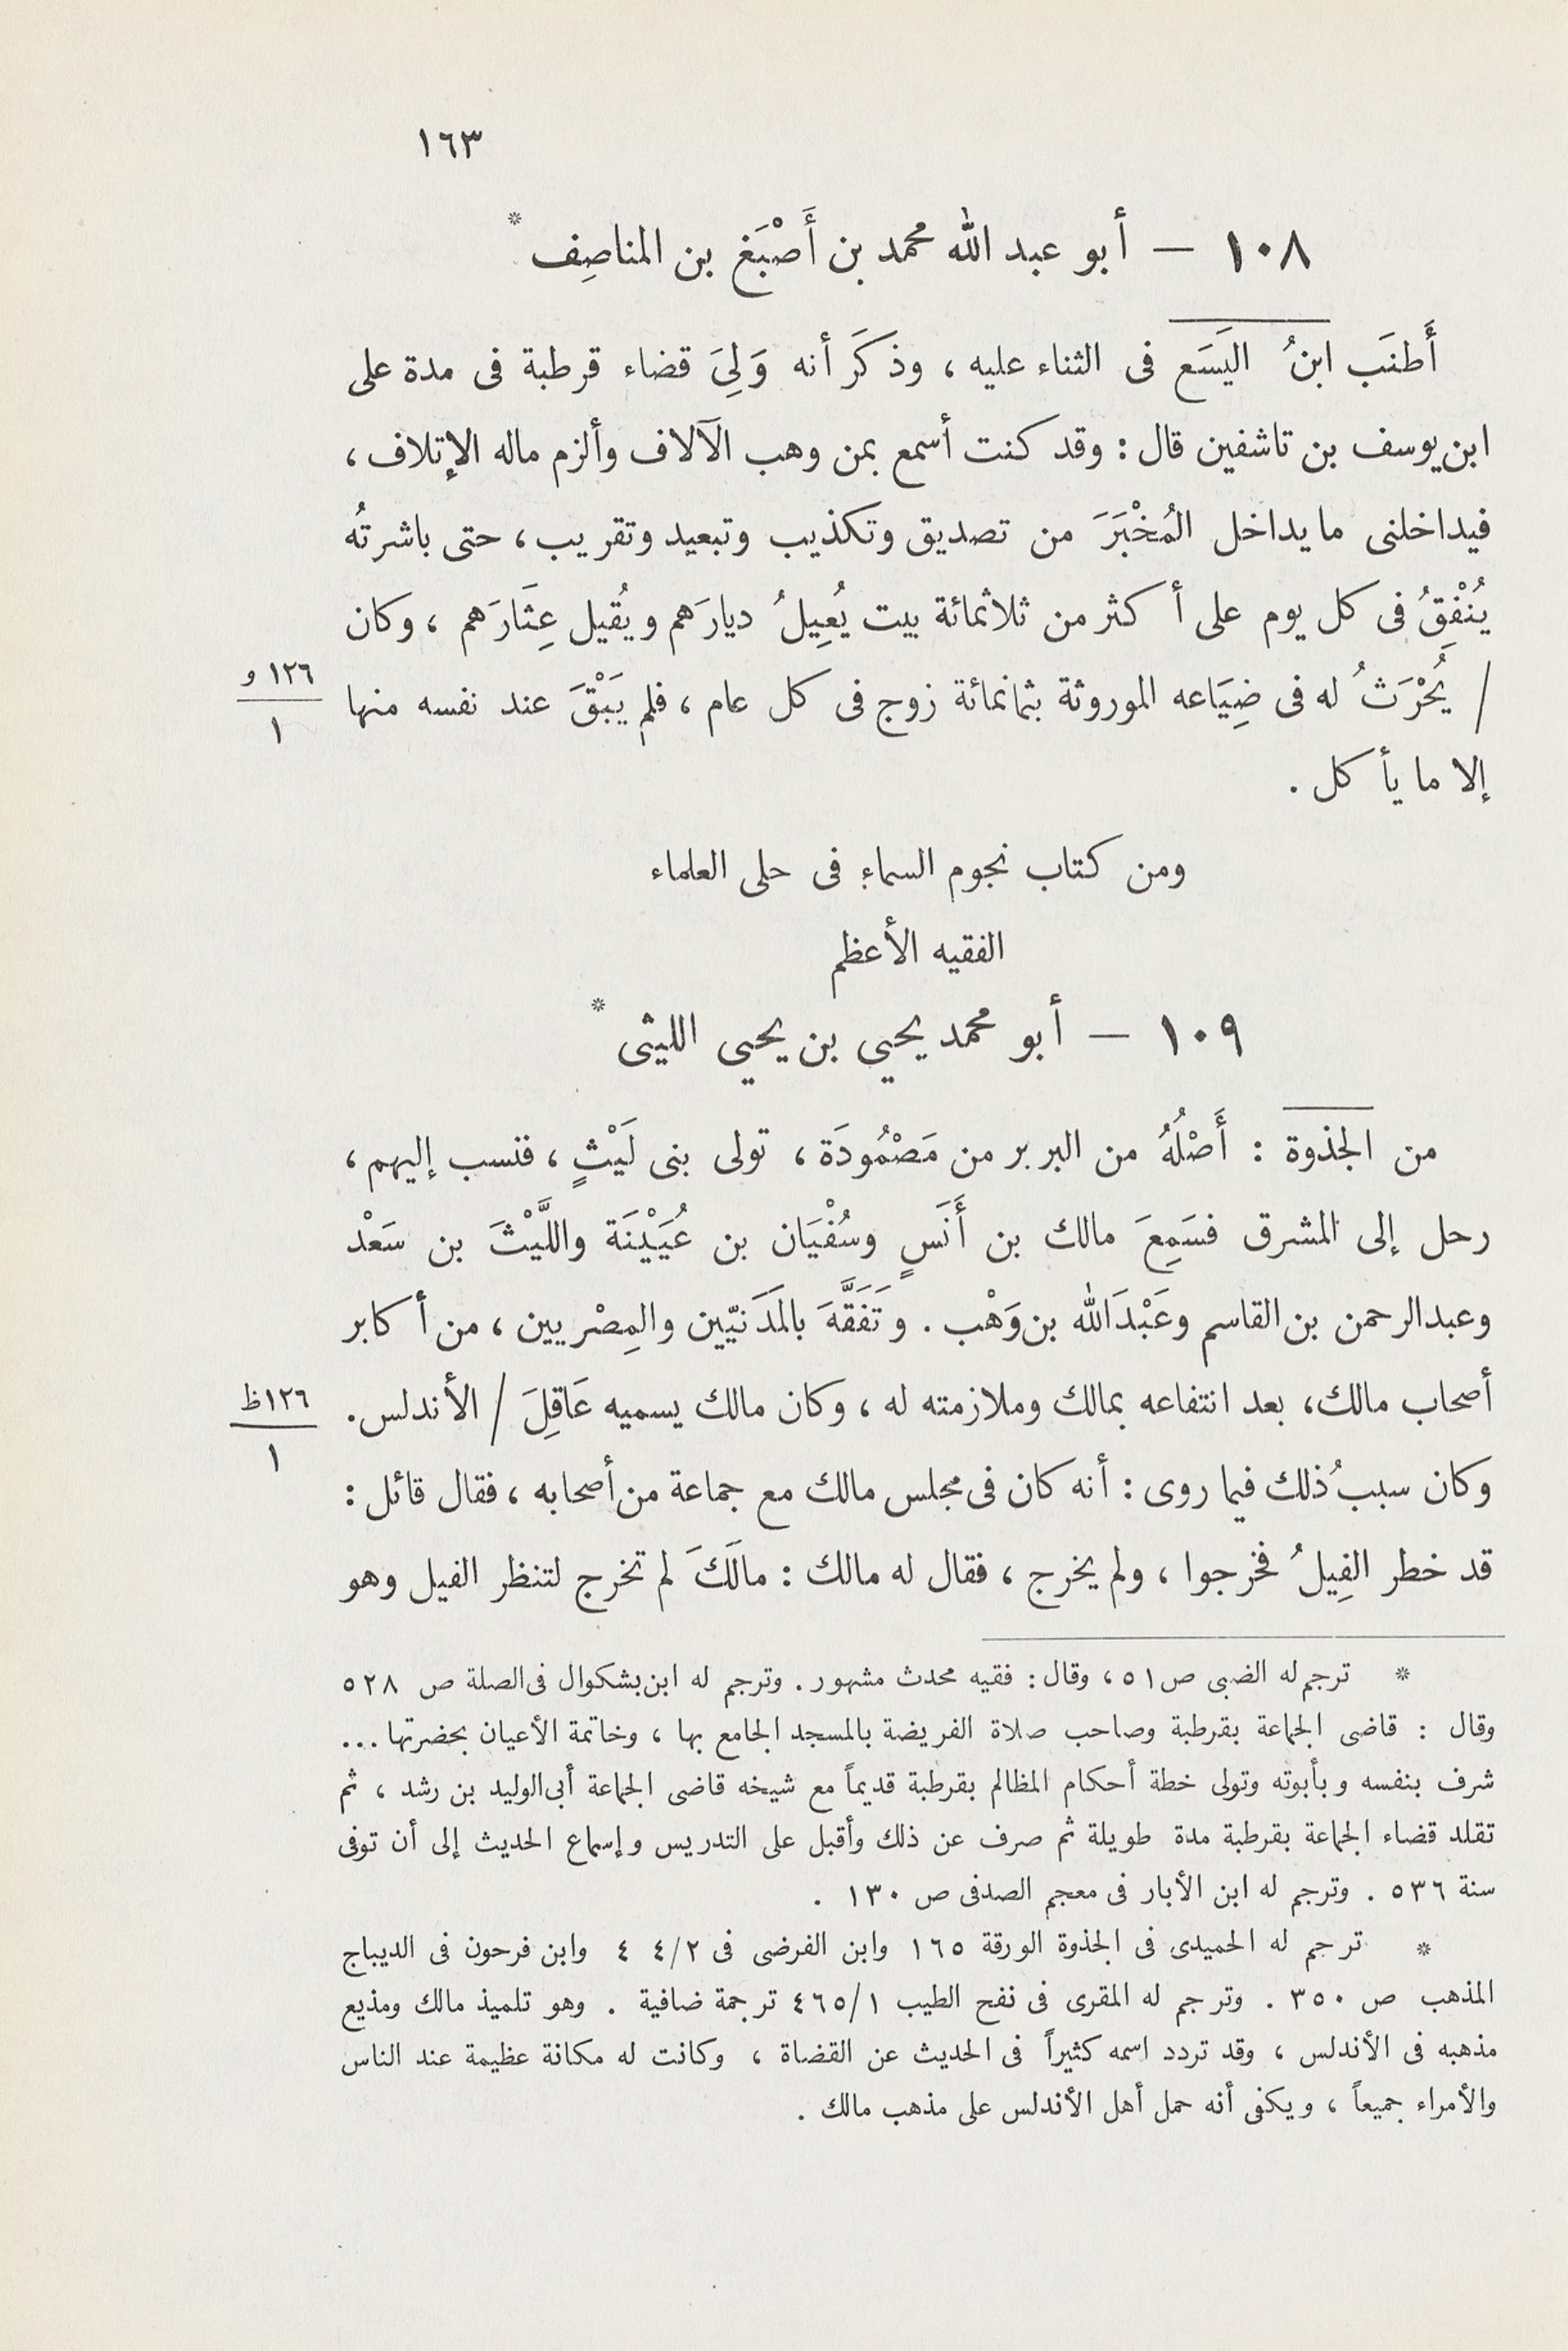 ١٦٣
١٠٨ — أبو عبد الله محمد بن أَصْبَغ بن المناصِف *
أَطنَب ابنُ اليَسَع فى الثناء عليه ، وذكَر أنه وَلِىَ قضاء قرطبة فى مدة على
ابن يوسف بن تاشفين قال : وقد كنت أسمع بمن وهب الآلاف وألزم ماله الإتلاف ،
فيداخلنى ما يداخل المُخْبَرَ من تصديق وتكذيب وتبعيد وتقريب ، حتى باشرتُه
يُنْفِقُ فى كل يوم على أكثر من ثلاثمائة بيت يُعِيلُ ديارَهم ويُقيل عِثَارَهم ، وكان
/ يُحْرَثُ له فى ضِيَاعه الموروثة بثمانمائة زوج فى كل عام ، فلم يَبْقَ عند نفسه منها
١٢٦ و
١
إلا ما يأكل .
ومن كتاب نجوم السماء فى حلى العلماء
الفقيه الأعظم
١٠٩ — أبو محمد يحيي بن يحيي الليثى *
من الجذوة : أَصْلُهُ من البربر من مَصْمُودَة ، تولى بنى لَيْثٍ ، فنسب إليهم ،
رحل إلى المشرق فسَمِعَ مالك بن أَنَسٍ وسُفْيَان بن عُيَيْنَة واللَّيْثَ بن سَعْد
وعبد الرحمن بن القاسم وعَبْدَ الله بن وَهْب . وتَفَقَّهَ بالمَدَنيّين والمِصْريين ، من أكابر
أصحاب مالك ، بعد انتفاعه بمالك وملازمته له ، وكان مالك يسميه عَاقِلَ / الأندلس .
١٢٦ ظ
١
وكان سببُ ذلك فيما روى : أنه كان فى مجلس مالك مع جماعة من أصحابه ، فقال قائل :
قد خطر الفِيلُ فخرجوا ، ولم يخرج ، فقال له مالك : مالَكَ لم تخرج لتنظر الفيل وهو
* ترجم له الضبى ص ٥١ ، وقال : فقيه محدث مشهور . وترجم له ابن بشكوال فى الصلة ص ٥٢٨
وقال : قاضى الجماعة بقرطبة وصاحب صلاة الفريضة بالمسجد الجامع بها ، وخاتمة الأعيان بحضرتها ...
شرف بنفسه وبأبوته وتولى خطة أحكام المظالم بقرطبة قديماً مع شيخه قاضى الجماعة أبى الوليد بن رشد ، ثم
تقلد قضاء الجماعة بقرطبة مدة طويلة ثم صرف عن ذلك وأقبل على التدريس وإسماع الحديث إلى أن توفى
سنة ٥٣٦ . وترجم له ابن الأبار فى معجم الصدفى ص ١٣٠ .
* ترجم له الحميدى فى الجذوة الورقة ١٦٥ وابن الفرضى فى ٤/٢ ٤ وابن فرحون فى الديباج
المذهب ص ٣٥٠ . وترجم له المقرى فى نفح الطيب ٤٦٥/١ ترجمة ضافية . وهو تلميذ مالك ومذيع
مذهبه فى الأندلس ، وقد تردد اسمه كثيراً فى الحديث عن القضاة ، وكانت له مكانة عظيمة عند الناس
والأمراء جميعاً ، ويكفى أنه حمل أهل الأندلس على مذهب مالك .